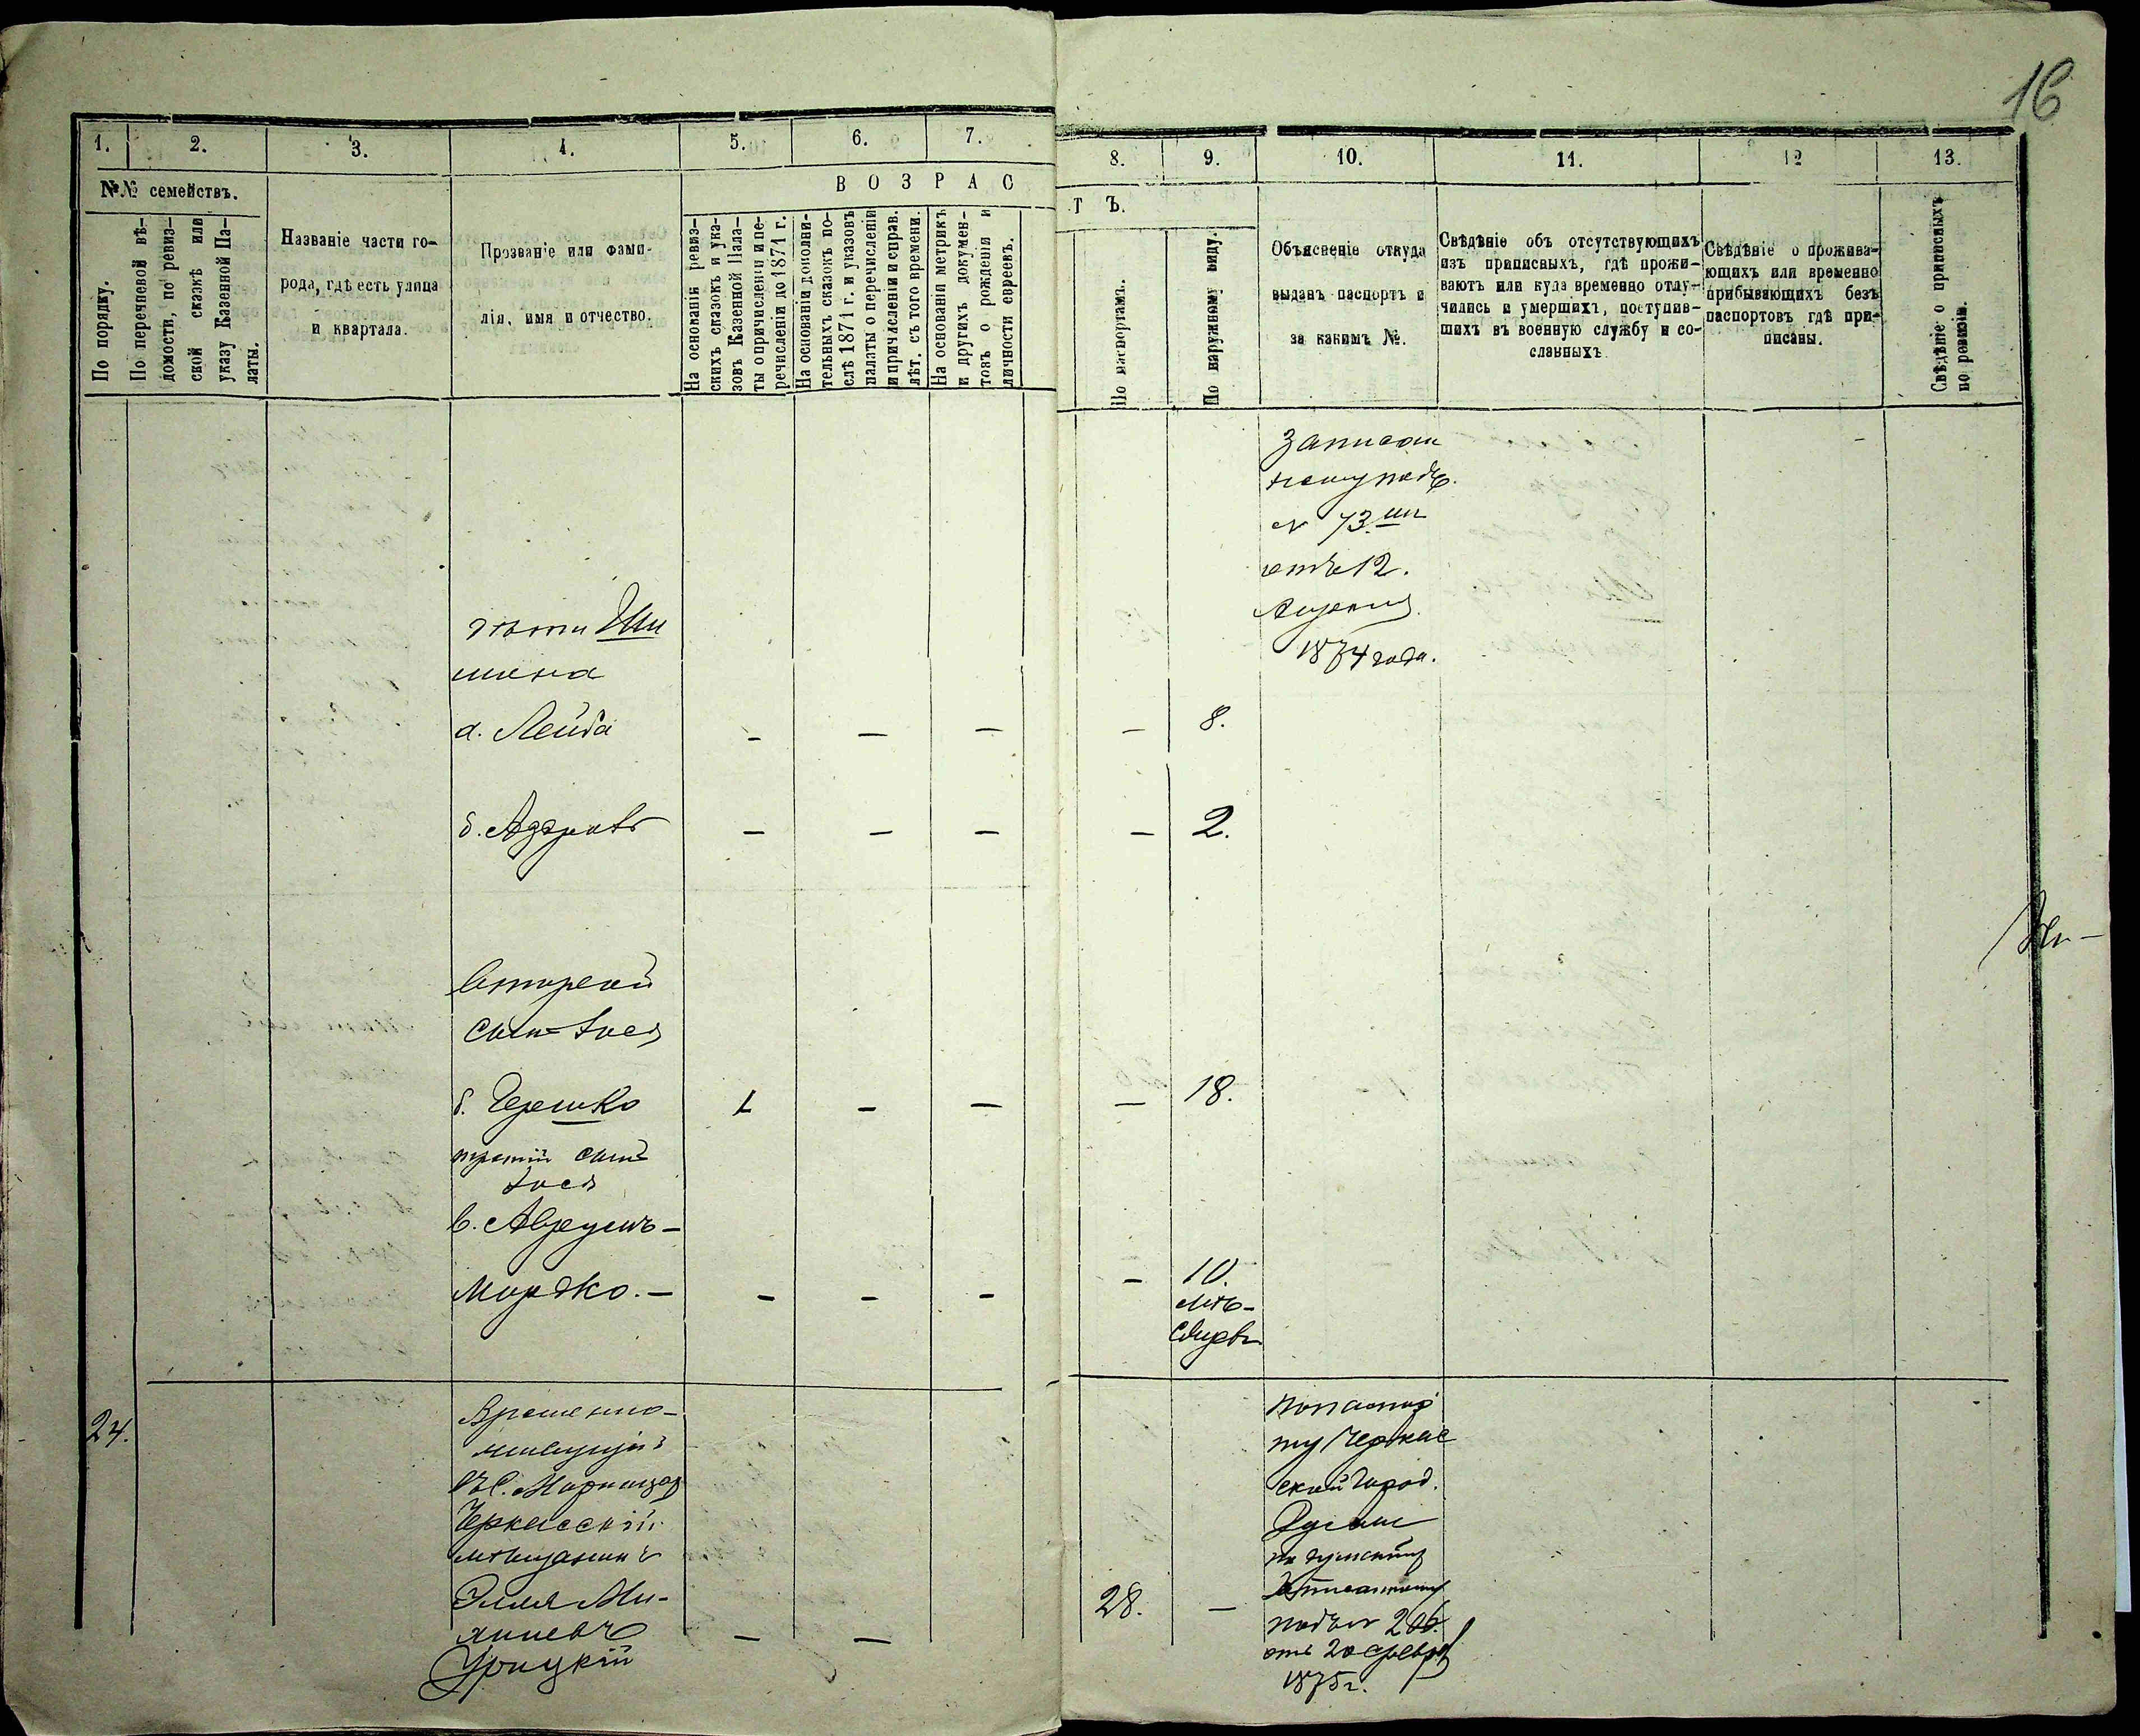 16
1.
2.
3.
4.
5.
6.
7.
8.
9.
10.
11.
12
13.
№№ семействъ.
По порядку.
По перечневой вѣ-
домости, по ревиз-
ской сказкѣ или
указу Казенной Па-
латы.
Названіе части го-
рода, гдѣ есть улица
и квартала.
Прозваніе или фами-
лія, имя и отчество.
ВОЗРАС
ТЪ.
На основаніи ревиз-
скихъ сказокъ и ука-
зовъ Казенной Пала-
ты о причисленіи и пе-
речисленіи до 1871 г.
На основаніи дополни-
тельныхъ сказокъ по-
слѣ 1871 г. и указовъ
палаты о перечисленіи
и причисленіи и справ.
лѣт. съ того времени.
На основаніи метрикъ
и другихъ докумен-
товъ о рожденіи и
личности евреевъ.
По паспортамъ.
По наружному виду.
Объясненіе откуда
выданъ паспортъ и
за какимъ №.
Свѣдѣніе объ отсутствующихъ
изъ приписныхъ, гдѣ прожи-
ваютъ или куда временно отлу-
чились и умершихъ, поступив-
шихъ въ военную службу и со-
сланныхъ
Свѣдѣніе о прожива-
ющихъ или временно
прибывающихъ безъ
паспортовъ гдѣ при-
писаны.
Свѣдѣніе о приписныхъ
по ревизіи.
№ 73
отъ 12.
1874 года.
дѣти Ши
мена
а. Лейба
— — — — 8.
б.
— — — — 2.
Второй
сынъ
б. Гершко
— — — 18.
третій сынъ
в.
Мордко. —
— — — — 10.
лѣт-
24.
Временно-
живущій
въ с.
Черкасскій
мѣщанинъ
Элля
Урицкій
— — 28. —
по паспор
ту Черкас
ской Город.
Думы
подъ №
отъ 20 Февра
1875 г.